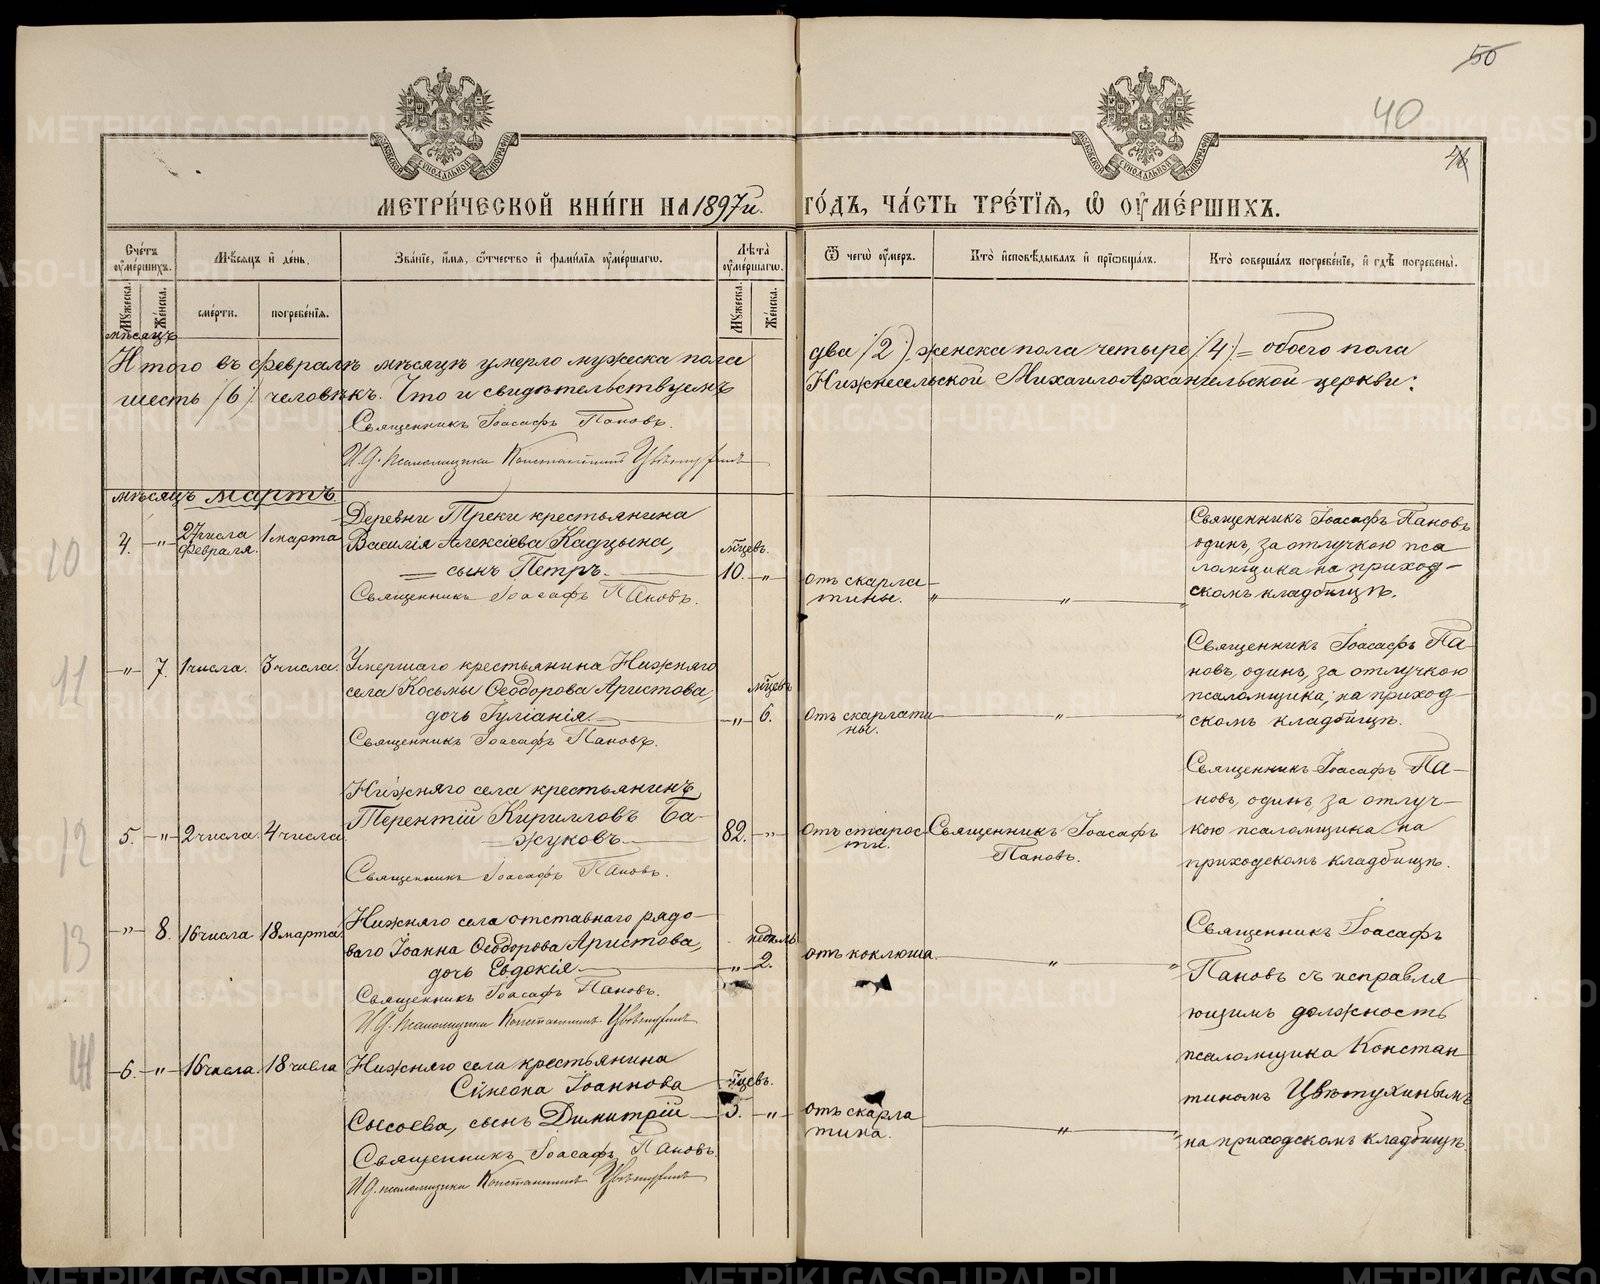 50
40
41
МЕТРИЧЕСКОЙ КНИГИ НА 1897й. ГОДЪ, ЧАСТЬ ТРЕТІЯ, Ѿ ОУМЕРШИХЪ.
Счетъ оумершихъ.
Мѣсяцъ и день.
Званіе, имя, отчество и фамилія оумершагѡ.
Лѣта оумершагѡ.
Ѿ чегѡ оумеръ.
Кто исповѣдывалъ и пріѡбщалъ.
Кто совершалъ погребеніе, и гдѣ погребены.
Мужеска.
Женска.
смерти.
погребенія.
Мужеска.
Женска.
мѣсяцъ
Итого въ февралѣ мѣсяцѣ умерло мужеска пола два /2/, женска пола четыре /4/ = обоего пола
шесть /6/ человѣкъ. Что и свидѣтельствуемъ Нижнесельской Михаило Архангельской церкви:
Священникъ Іоасафъ Пановъ.
И. Д. псаломщика Константинъ Цвѣтухинъ
мѣсяцъ мартъ
10
4. „ 27 числа февраля. 1 марта
Деревни Треки крестьянина
Василія Алексіева Кадцына,
сынъ Петръ.
Священникъ Іоасафъ Пановъ.
мѣцевъ.
10. „
отъ скарла-
тины.
„ „ „
Священникъ Іоасафъ Пановъ
одинъ, за отлучкою пса
ломщика на приход-
скомъ кладбищѣ.
11
„ 7. 1 числа. 3 числа.
Умершаго крестьянина Нижняго
села Косьмы Ѳеодорова Аристова,
дочь Іуліанія.
Священникъ Іоасафъ Пановъ.
мѣцевъ
„ 6.
отъ скарлати
ны.
„ „
Священникъ Іоасафъ Па-
новъ, одинъ, за отлучкою
псаломщика, на приход
скомъ кладбищѣ.
12
5. „ 2 числа. 4 числа
Нижняго села крестьянинъ
Терентій Кирилловъ Ба-
жуковъ.
Священникъ Іоасафъ Пановъ.
82. „
отъ старос
ти.
Священникъ Іоасафъ
Пановъ.
Священникъ Іоасафъ Па-
новъ, одинъ за отлуч-
кою псаломщика на
приходскомъ кладбищѣ.
13
„ 8. 16 числа 18 марта
Нижняго села отставнаго рядо-
ваго Іоанна Ѳеодорова Аристова,
дочь Евдокія
Священникъ Іоасафъ Пановъ.
И. Д. псаломщика Константинъ Цвѣтухинъ
недѣль
„ 2.
отъ коклюша.
„ „
Священникъ Іоасафъ
Пановъ съ исправля
ющимъ должность
псаломщика Констан
тиномъ Цвѣтухинымъ
на приходскомъ кладбищѣ
14
6. „ 16 числа. 18 числа
Нижняго села крестьянина
Сѵмеона Іоаннова
Сысоева, сынъ Димитрій
Священникъ Іоасафъ Пановъ.
И. Д. псаломщика Константинъ Цвѣтухинъ
мѣцевъ.
5. „
отъ скарла
тина.
„ „